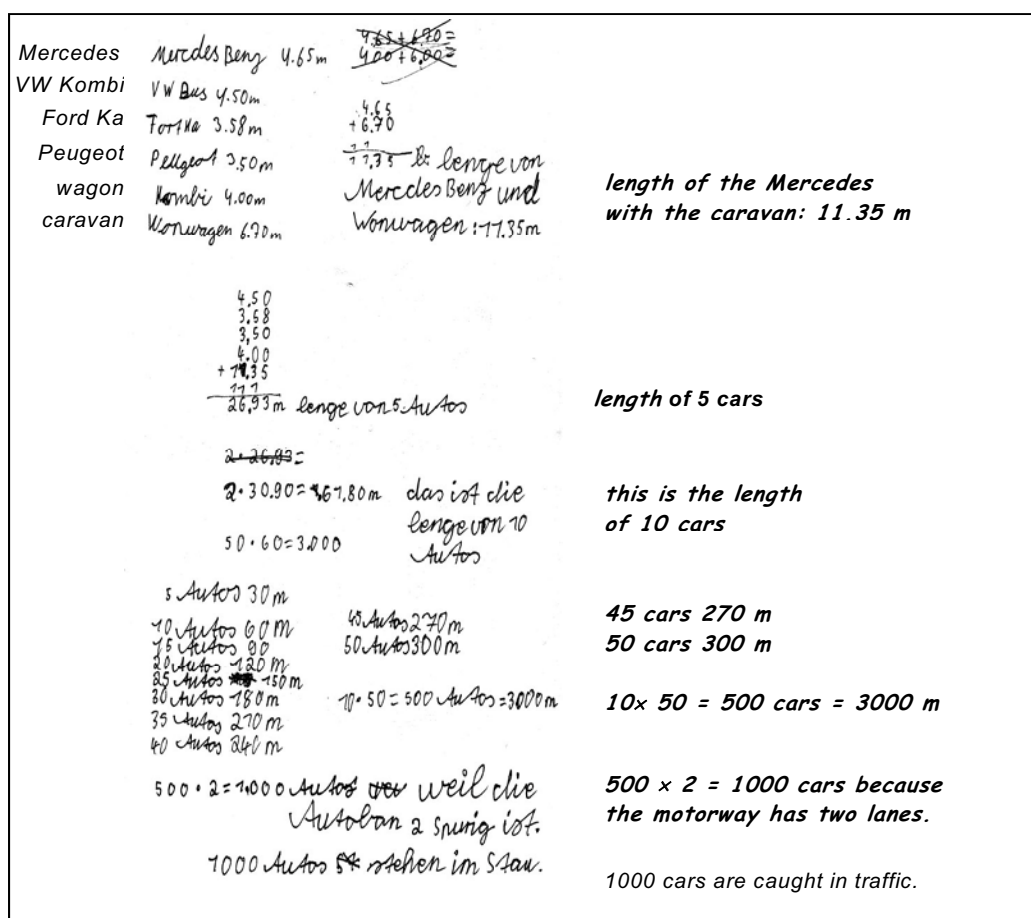 Mercedes
VW Kombi
Ford Ka
Peugeot
wagon
caravan
Mercdes Benz 4.65m
VW Bus 4.50m
Fort Ka 3.58m
Peugeot 3.50m
Kombi 4.00m
Wonwagen 6.70m
4.65+6.70=
4.00+6.00=
4.65
+6.70
11
11,35
lenge von
Mercdes Benz und
Wonwagen: 11.35m
length of the Mercedes
with the caravan: 11.35 m
4,50
3,58
3,50
4.00
+11,35
111
26,93m lenge von 5 Autos
length of 5 cars
2·26,93=
2·30.90= 61,80m
das ist die
lenge von 10
Autos
50·60=3.000
this is the length
of 10 cars
5 Autos 30m
10 Autos 60M
15 Autos 90
20 Autos 120m
25 Autos 150m
30 Autos 180m
35 Autos 210m
40 Autos 240m
45 Autos 270m
50 Autos 300m
10·50=500 Autos=3000m
45 cars 270 m
50 cars 300 m
10× 50 = 500 cars = 3000 m
500·2=1.000 Autos weil die
Autoban 2 spurig ist.
1000 Autos stehen im Stau.
500 × 2 = 1000 cars because
the motorway has two lanes.
1000 cars are caught in traffic.